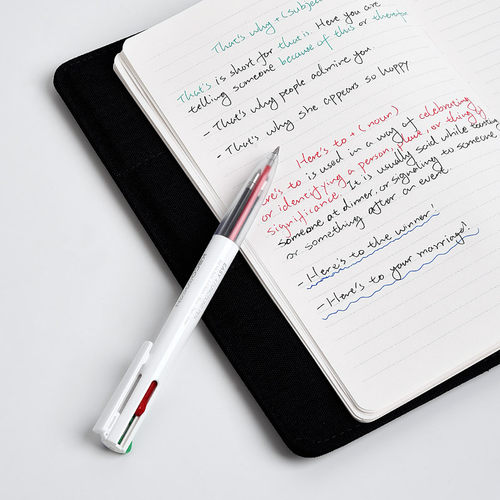 That's why + (subject
That's is short for that is. Here you are
telling someone because of this or therefore
- That's why people admire you
- That's why she appears so happy
Here's to + (noun)
ere's to is used in a way of celebrating
or identifying a person, place, or thing's
significance. It is usually said while toasting
someone at dinner, or signaling to someone
or something after an event.
- Here's to the winner!
- Here's to your marriage!